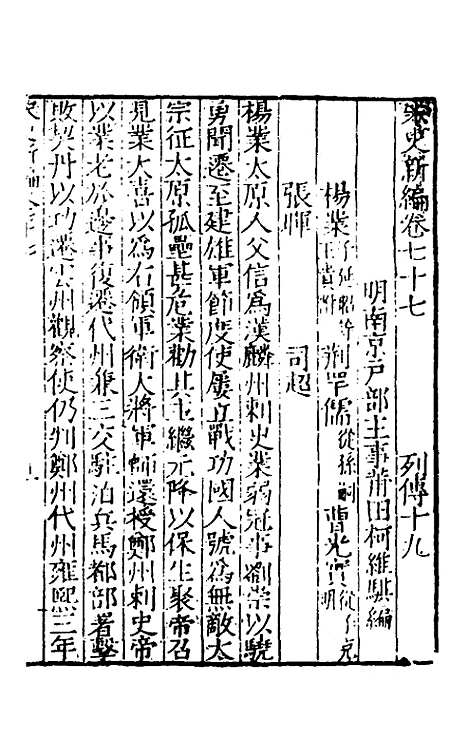 宋史新編卷七十七 列傳十九
明南京戶部主事莆田柯維騏編
楊業子延昭等 王貴附 荊罕儒從孫嗣 曹光實從子克明
張暉 司超
楊業太原人父信為漢麟州刺史業弱冠事劉崇以驍
勇聞遷至建雄軍節度使屢立戰功國人號為無敵太
宗征太原孤壘甚危業勸其主繼元降以保生聚帝召
見業大喜以為右領軍衛大將軍師還授鄭州刺史帝
以業老於邊事復遷代州兼三交駐泊兵馬都部署擊
敗契丹以功遷雲州觀察使仍判鄭州代州雍熙三年
宋史新編卷七十七 一